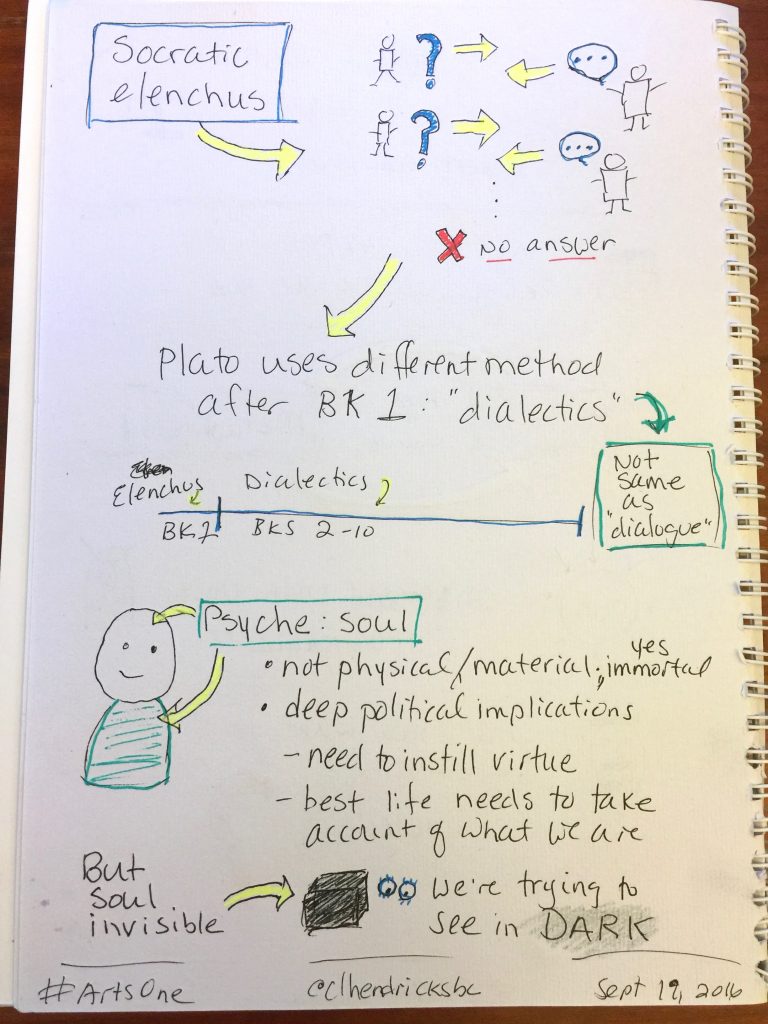 Socratic
elenchus
? 
?
X No answer
Plato uses different method
after BK 1: "dialectics"
Elenchus
Dialectics
BK 1
BKS 2-10
Not
same
as
"dialogue"
Psyche: soul
• not physical/material; immortal
yes
• deep political implications
- need to instill virtue
- best life needs to take
account of what we are
But
soul
invisible
We're trying to
see in DARK
#ArtsOne
@clhendricksbc
Sept 19, 2016